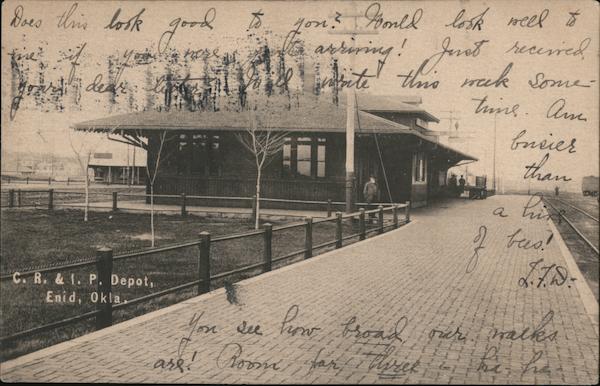 Does this look good to you? Would look well to
me if you were just arriving! Just received
your dear letter. Will write this week some-
time. Am
busier
than
a hive
of bees!
L.F.D.-
C. R. & I. P. Depot,
Enid, Okla.
You see how broad our walks
are! Room for three - ha-ha-